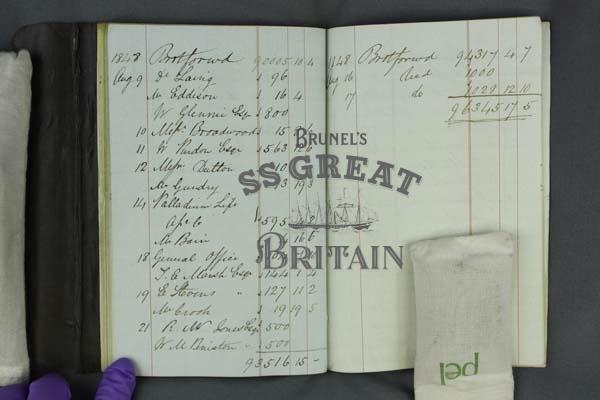 1848 Brotforwd 90005 10 4
Aug 9 Dr Laing 96
Mr Eddison 16 4
W Glennie Esqr 800
10 Messrs Broadwood 15
11 W Purdon Esqr 563 12 6
12 Messrs Dutton
Mr Gundry 3 19 3
14 Palladium Life
Asce Co 595
Mr Bain 16 6
18 General Office
T. E. Marsh Esqr 144 1 4
19 E Stevens " 127 11 2
Mr Crook 19 19 5
21 R. W Jones Esqr 500
W M Peniston " 500
93516 15 -
1848 Brotforwd 94317 4 7
Aug 16 1000
17 do 1029 12 10
96345 17 5
BRUNEL'S
SS GREAT
BRITAIN
pel